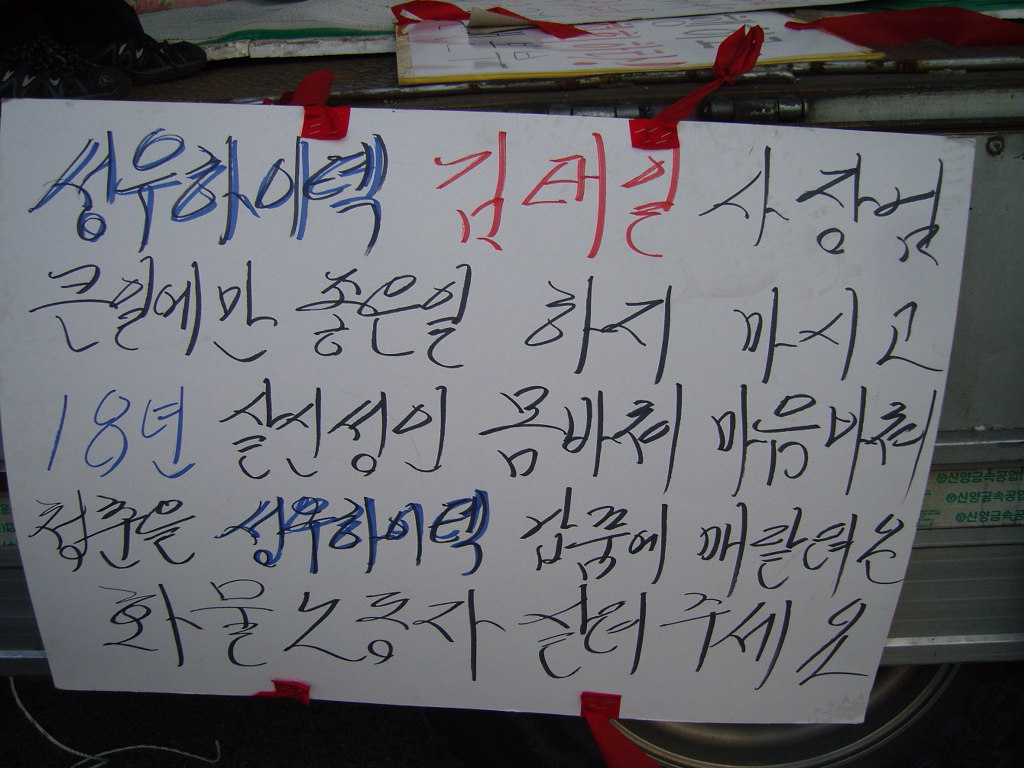 성우하이텍 김태일 사장님
큰일에만 좋은일 하지 마시고
18년 살신성인 몸바쳐 마음바쳐
청춘을 성우하이텍 납품에 매달려온
화물노동자 살려 주세요
신양금속공업
신양금속공업
신양금속공업